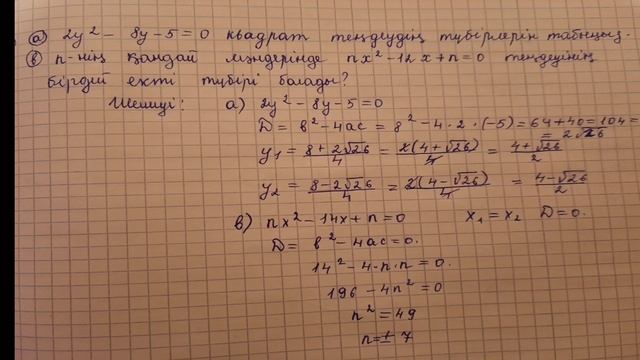 а) 2y² - 8y - 5 = 0 квадрат теңдеудің түбірлерін табыңыз.
в) n-нің қандай мәндерінде nx² - 12x + n = 0 теңдеуінің
бірдей екті түбірі болады?
Шешуі: а) 2y² - 8y - 5 = 0
D = b² - 4ac = 8² - 4 · 2 · (-5) = 64 + 40 = 104 =
= 2√26
y₁ = (8 + 2√26)/4 = 2(4 + √26)/4 = (4 + √26)/2
y₂ = (8 - 2√26)/4 = 2(4 - √26)/4 = (4 - √26)/2
в) nx² - 14x + n = 0 x₁ = x₂ D = 0.
D = b² - 4ac = 0.
14² - 4·n·n = 0.
196 - 4n² = 0
n² = 49
n = ± 7